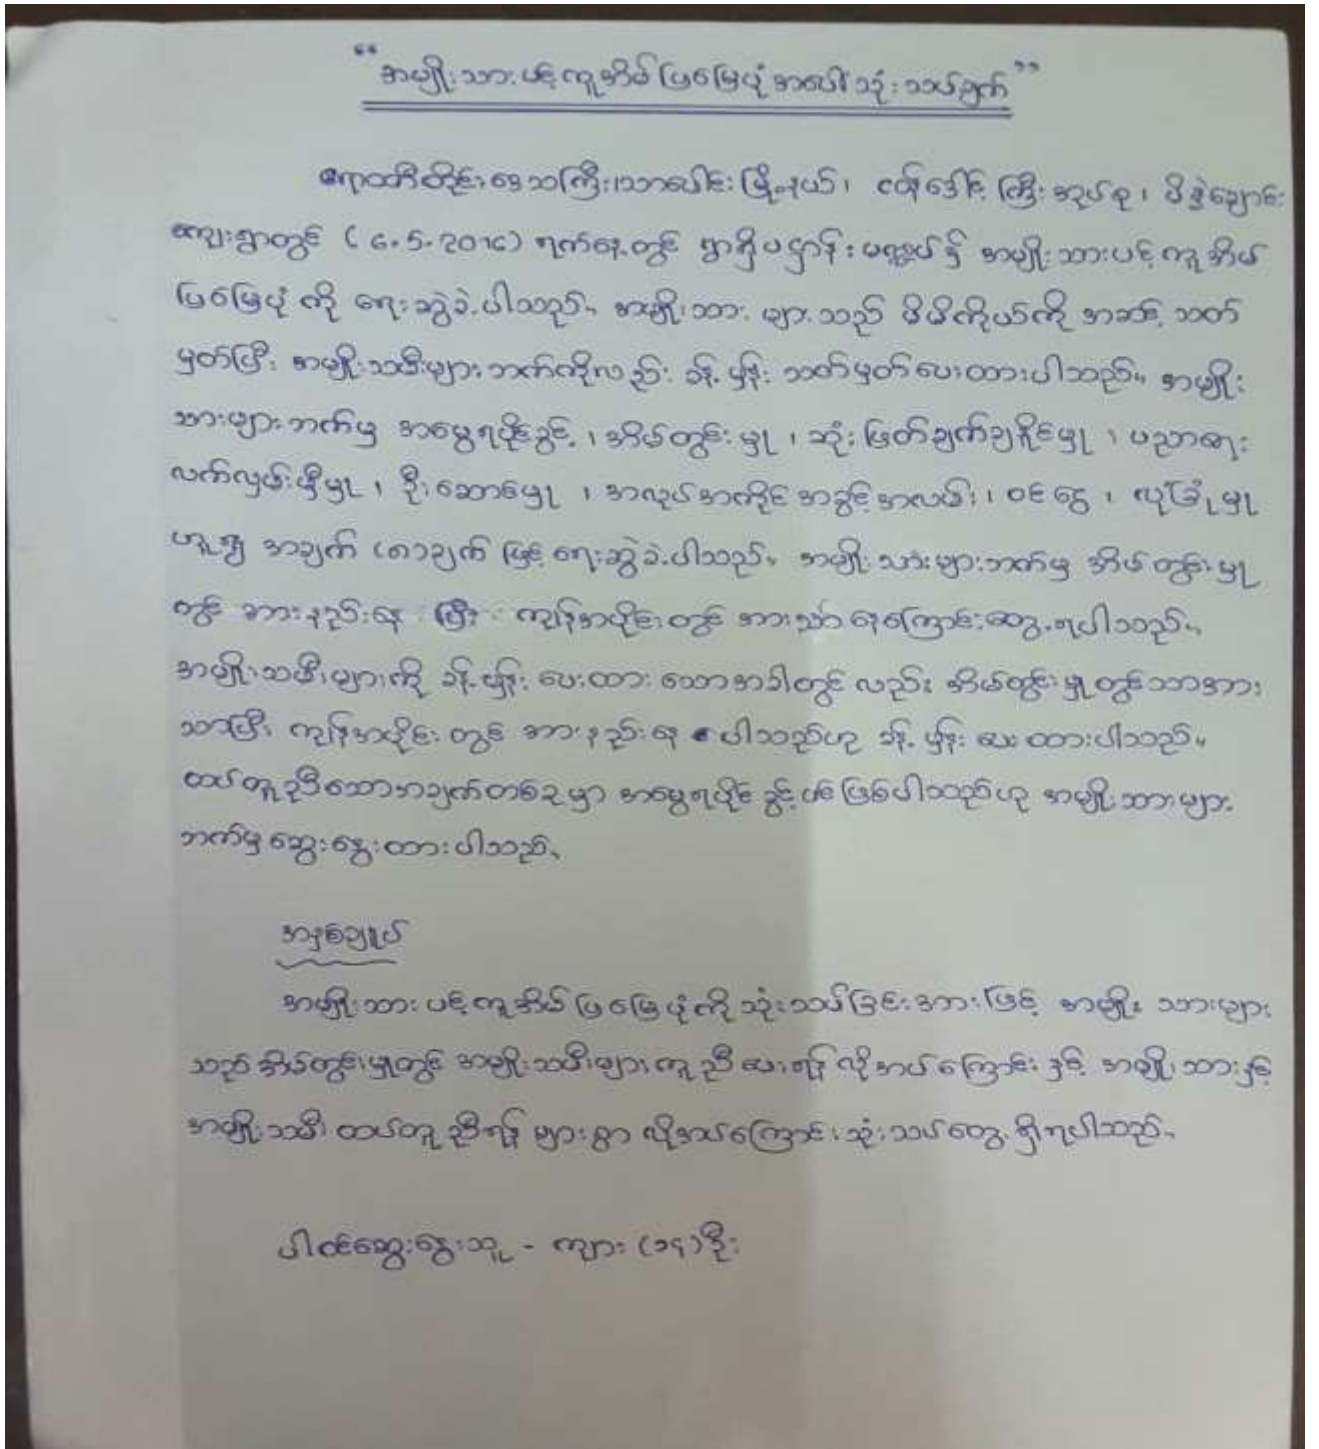 "အမျိုးသားပင့်ကူအိမ်ပြမြေပုံအပေါ်သုံးသပ်ချက်"
ဧရာဝတီတိုင်းဒေသကြီး၊ သာပေါင်းမြို့နယ်၊ ငှက်ဒေါင့်ကြီးအုပ်စု၊ ဖိဖွဲချောင်း
ကျေးရွာတွင် (6.5.2016) ရက်နေ့တွင် ရွာရှိပဋ္ဌာန်းမဏ္ဍပ်၌ အမျိုးသားပင့်ကူအိမ်
ပြမြေပုံ ကို ရေးဆွဲခဲ့ပါသည်။ အမျိုးသား များသည် မိမိကိုယ်ကို အဆင့် သတ်
မှတ်ပြီး အမျိုးသမီးများဘက်ကိုလည်း ခန့်မှန်း သတ်မှတ်ပေးထားပါသည်။ အမျိုး
သားများဘက်မှ အမွေရပိုင်ခွင့်၊ အိမ်တွင်းမှု၊ ဆုံးဖြတ်ချက်ချနိုင်မှု၊ ပညာရေး
လက်လှမ်းမှီမှု၊ ဦးဆောင်မှု၊ အလုပ်အကိုင်အခွင့်အလမ်း၊ ဝင်ငွေ၊ လုံခြုံမှု
ဟူ၍ အချက် (၈)ချက် ဖြင့် ရေးဆွဲခဲ့ပါသည်။ အမျိုးသားများဘက်မှ အိမ်တွင်းမှု
တွင် အားနည်းနေ ပြီး ကျန်အပိုင်းတွင် အားသာနေကြောင်းတွေ့ရပါသည်။
အမျိုးသမီးများကို ခန့်မှန်း ပေးထားသောအခါတွင် လည်း အိမ်တွင်းမှုတွင်သာအား
သာပြီး ကျန်အပိုင်းတွင် အားနည်းနေ ပါသည်ဟု ခန့်မှန်း ပေးထားပါသည်။
ထပ်တူညီသောအချက်တစ်ခုမှာ အမွေရပိုင်ခွင့်ပင်ဖြစ်ပါသည်ဟု အမျိုးသားများ
ဘက်မှ ဆွေးနွေးထားပါသည်။
အနှစ်ချုပ်
အမျိုးသားပင့်ကူအိမ်ပြမြေပုံကို သုံးသပ်ခြင်းအားဖြင့် အမျိုးသားများ
သည် အိမ်တွင်းမှုတွင် အမျိုးသမီးများကူညီပေးရန် လိုအပ်ကြောင်းနှင့် အမျိုးသားနှင့်
အမျိုးသမီး ထပ်တူညီရန် များစွာ လိုအပ်ကြောင်း သုံးသပ်တွေ့ရှိရပါသည်။
ပါဝင်ဆွေးနွေးသူ - ကျား (၁၄)ဦး